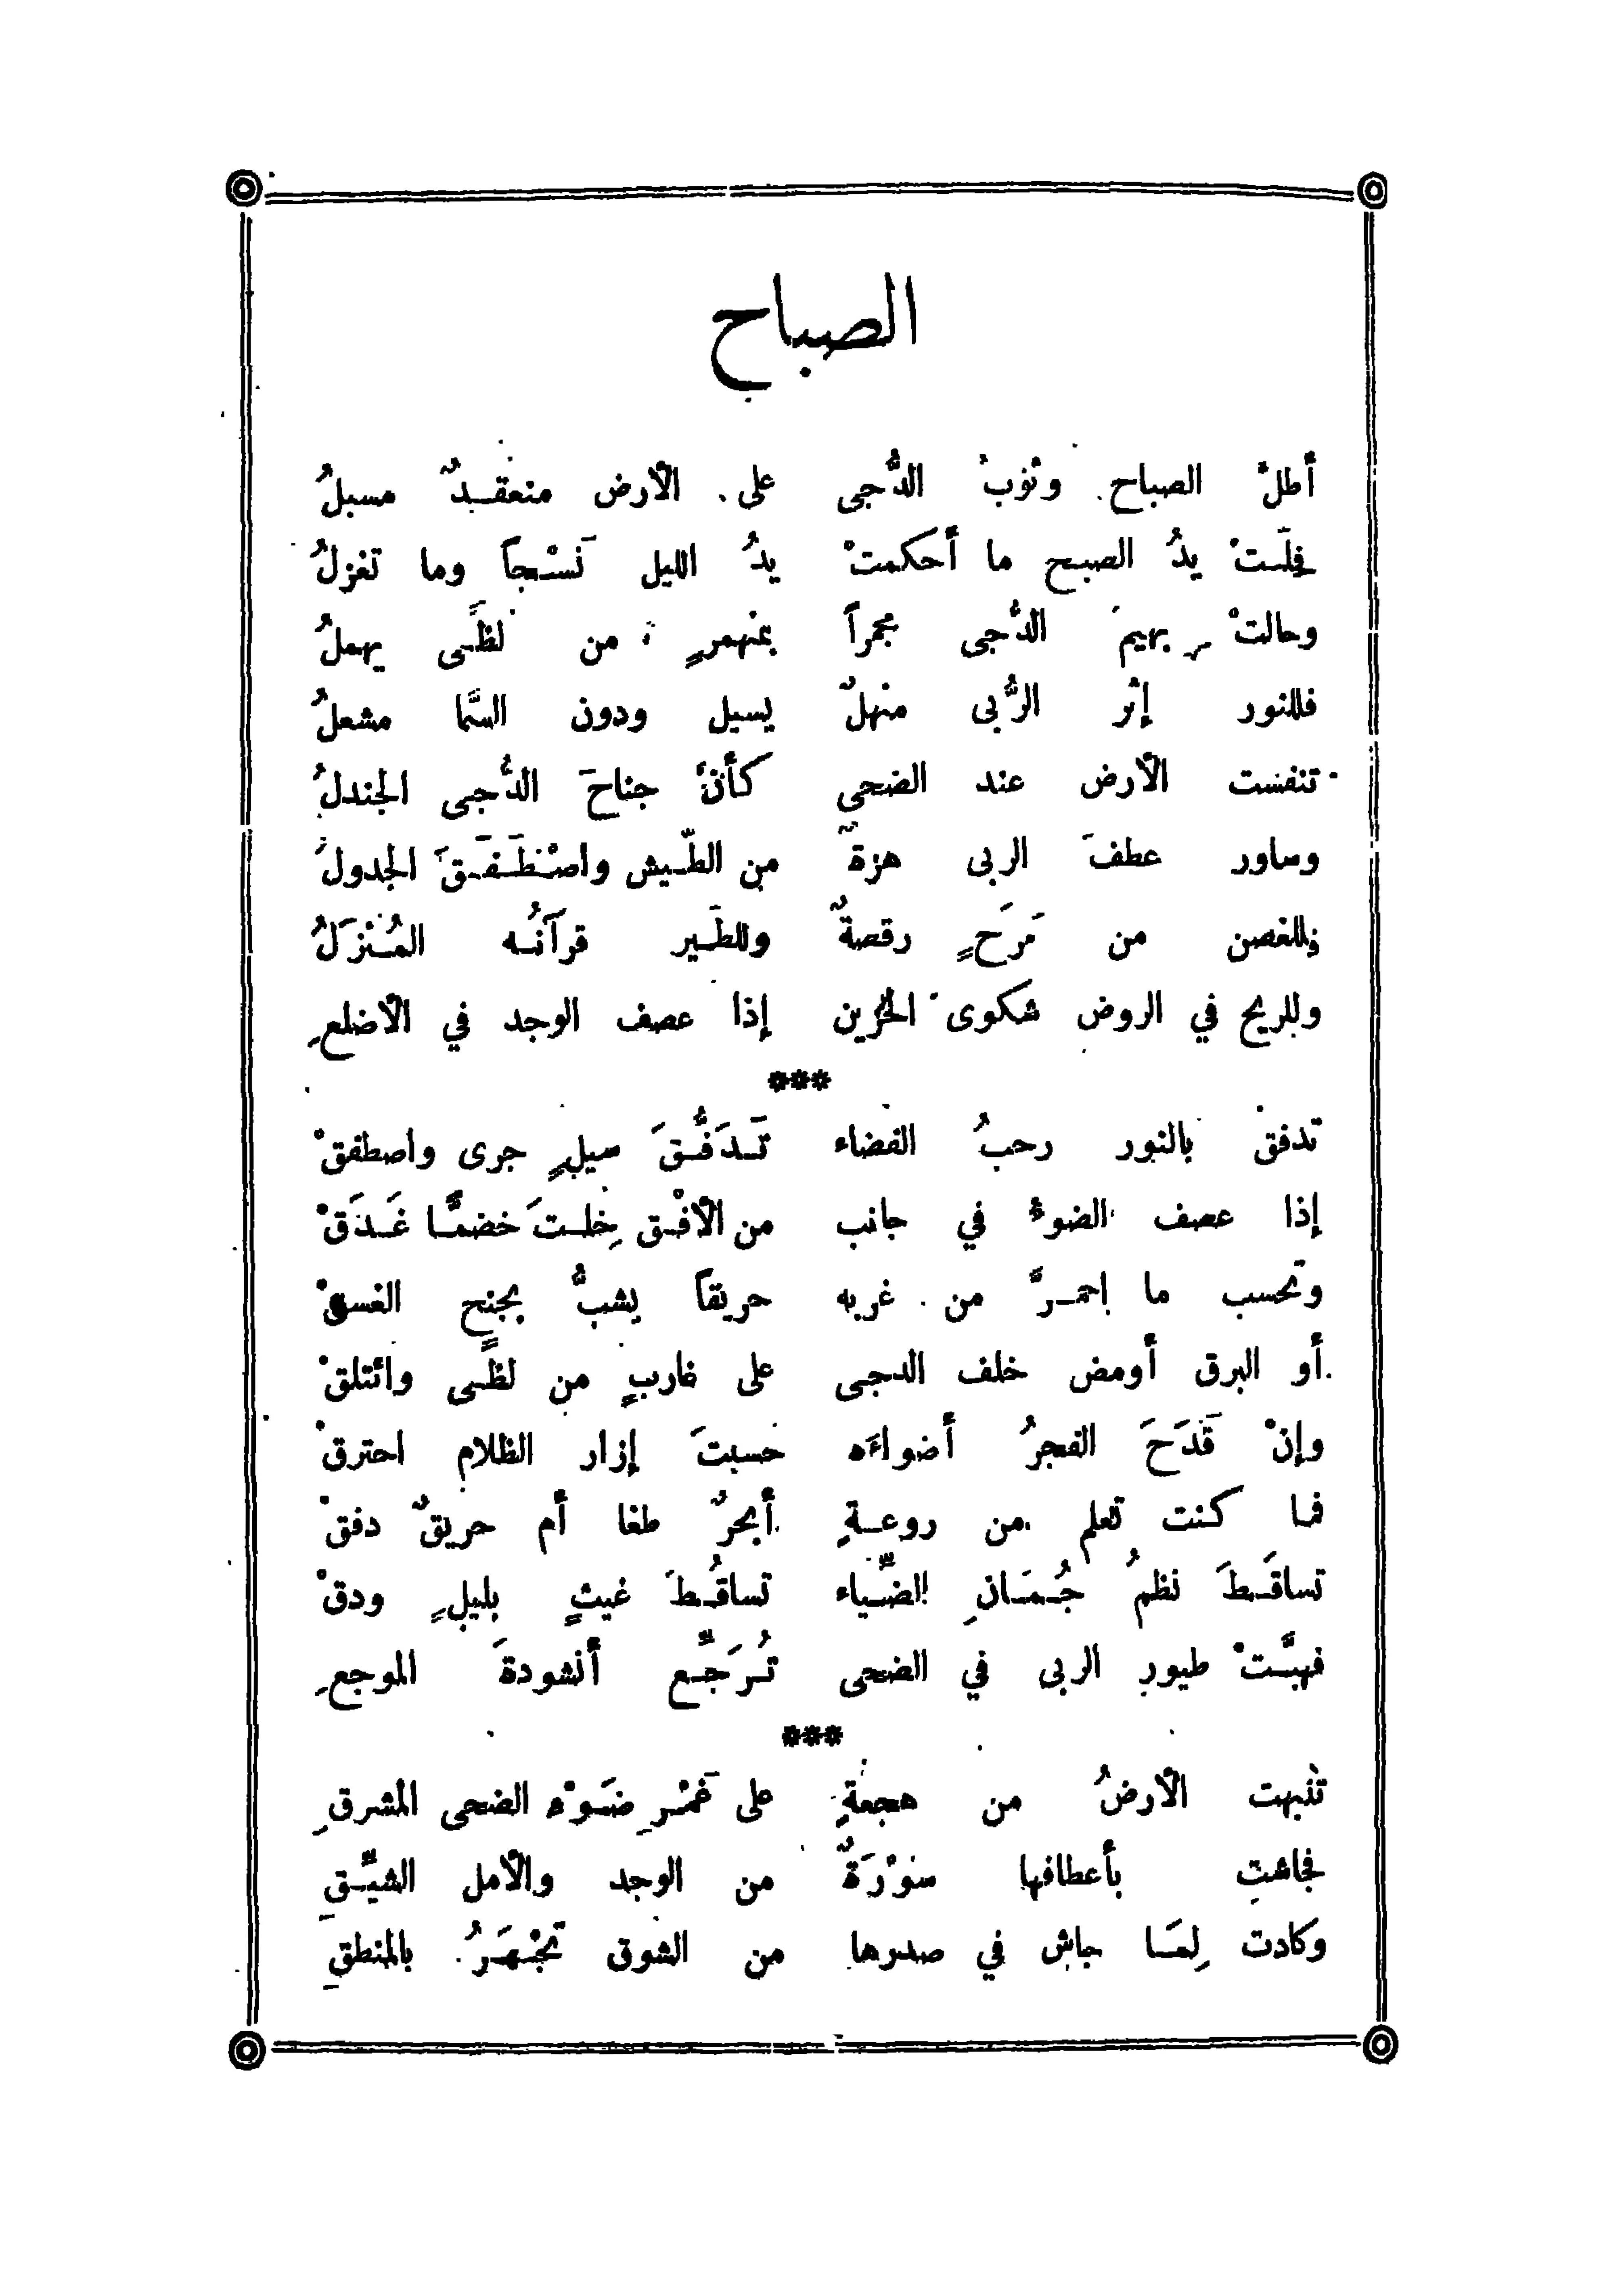 الصباح
أطلّ الصباح وثوبُ الدُّجى على الأرض منعقدٌ مسبلُ
فلّتْ يدُ الصبح ما أحكمتْ يدُ الليل نَسْجاً وما تغزلُ
وحالتْ بهيمَ الدُّجى مجمراً بمنهمرٍ من لظًى يهملُ
فللنور إثر الرُّبى منهلٌ يسيل ودون السَّما مشعلُ
تنفست الأرض عند الضحى كأنَّ جناحَ الدُّجى الجندلُ
وساور عطفَ الربى هزةٌ من الطّيش واصْطَفَقَ الجدولُ
فللغصن من مَرَحٍ رقصةٌ وللطَّير قرآنُه المُنْزَلُ
وللريح في الروض شكوى الحزين إذا عصف الوجد في الأضلعِ
***
تدفق بالنور رحبُ الفضاء تَدَفُّقَ سيلٍ جرى واصطفقْ
إذا عصف الضوءُ في جانب من الأفْق خِلتَ خضمًّا غَدَقْ
وتحسب ما إحمرَّ من غربه حريقاً يشبُّ بجنحِ الغسقْ
أو البرق أومض خلف الدجى على غاربٍ من لظًى وائتلقْ
وإنْ قَدَحَ الفجرُ أضواءَه حسبتَ إزار الظلام احترقْ
فما كنت تعلم من روعةٍ أبحرٌ طغا أم حريقٌ دفقْ
تساقَطَ نظمُ جُمَانِ الضِّياء تساقُطَ غيثٍ بليلٍ ودقْ
فهبَّتْ طيور الربى في الضحى تُرَجِّع أنشودةَ الموجعِ
***
تنبهت الأرضُ من هجعةٍ على غَمْرِ ضَوْه الضحى المشرقِ
فجاشت بأعطافها سَوْرَةٌ من الوجد والأمل الشيِّقِ
وكادت لِمَا جاش في صدرها من الشوق تَجْهَرُ بالمنطقِ